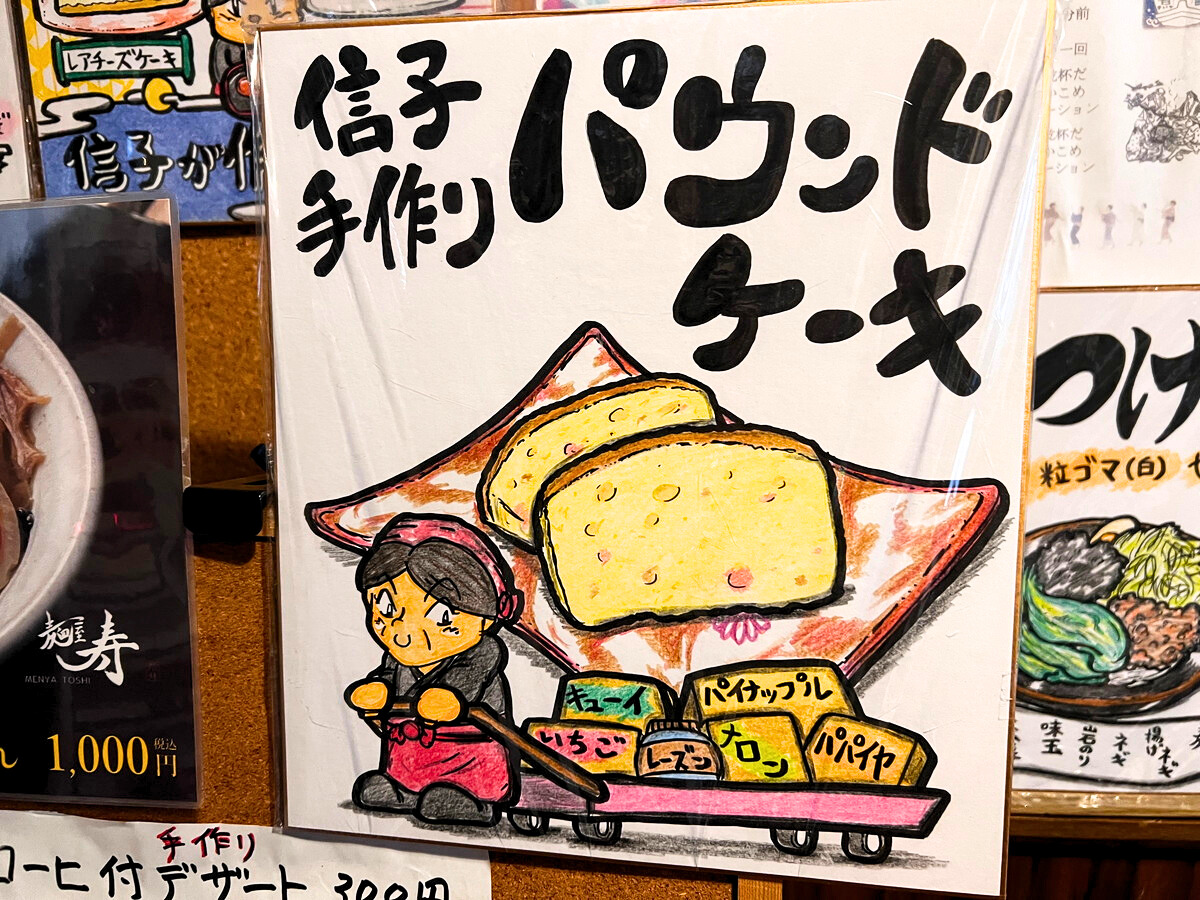 レアチーズケーキ
信子が作
信子
手作り
パウンド
ケーキ
キューイ
パイナップル
いちご
レーズン
メロン
パパイヤ
麺屋 寿
MENYA TOSHI
ん 1,000円
税込
手作り
コーヒ付デザート 300円
分前
一回
乾杯だ
いこめ
ーション
乾杯だ
いこめ
ーション
つけ
粒ゴマ(白)
揚げネギ
ネギ
岩のり
味玉